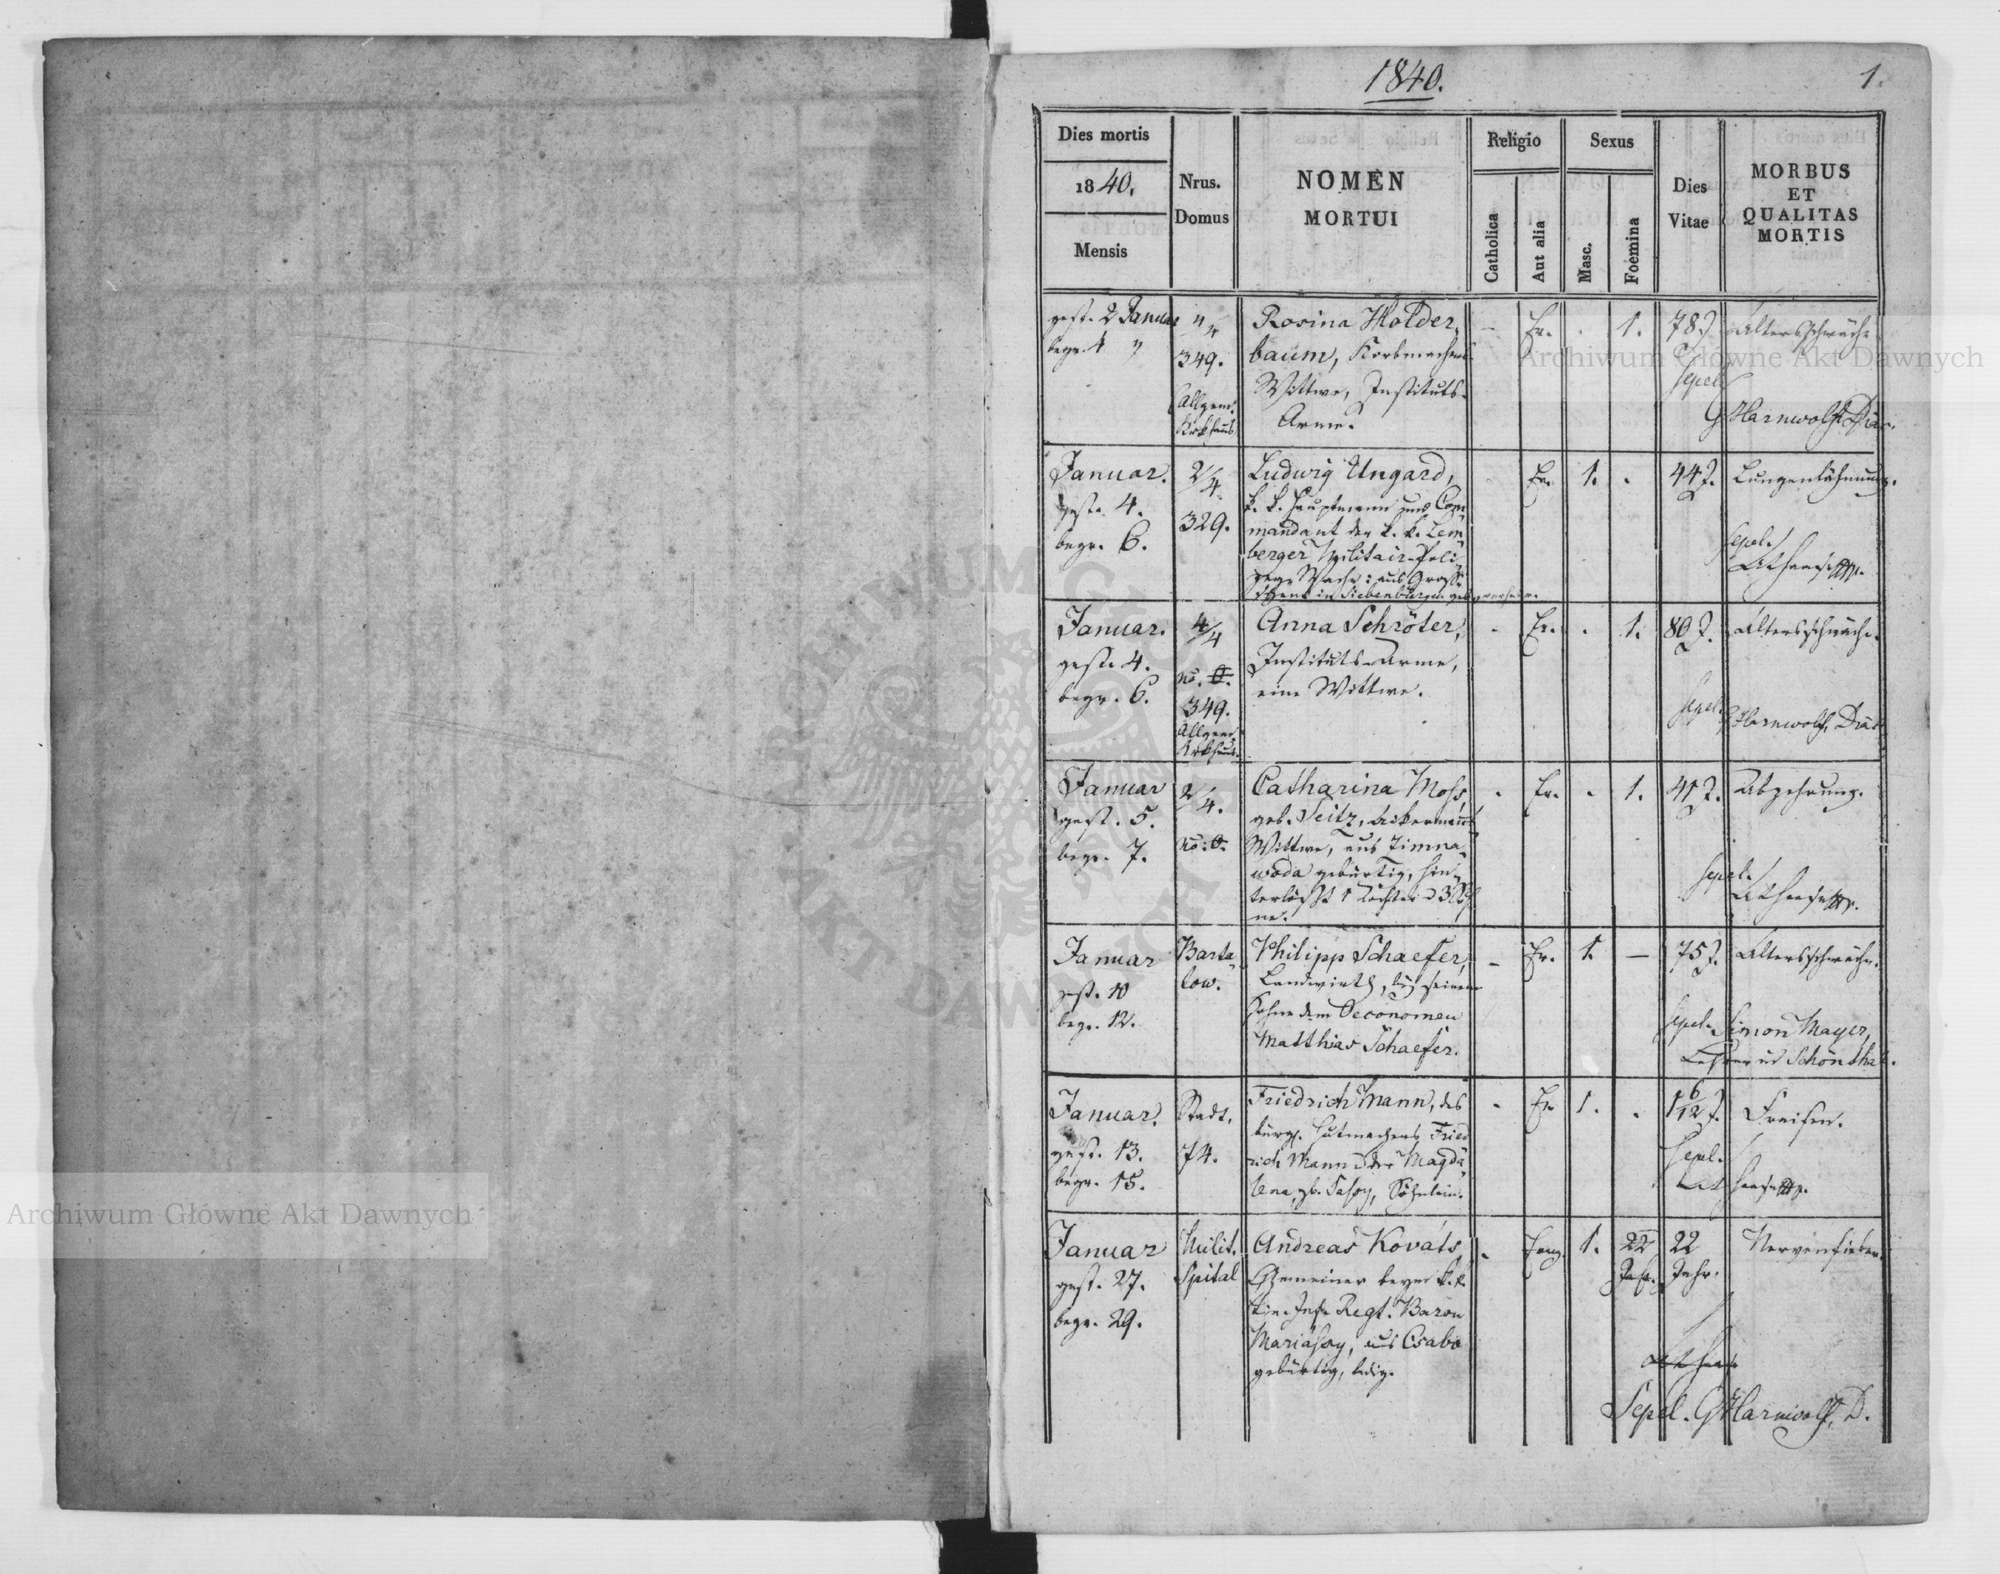 1840.
1.
Dies mortis
1840.
Mensis
Nrus.
Domus
NOMEN
MORTUI
Religio
Catholica
Aut alia
Sexus
Masc.
Foemina
Dies
Vitae
MORBUS
ET
QUALITAS
MORTIS
gest. 2 Januar
begr. 4 "
349.
Allgem.
Krkhaus
Rosina Holder-
baum, Korbmachers
Wittwe, Instituts-
Arme.
-
Ev.
.
1.
78 J.
Altersschwäche
sepel.
G Harnwolf, Diac.
Januar.
gest. 4.
begr. 6.
2/4.
329.
Ludwig Ungard,
k. k. Hauptmann und Com-
mandant der k. k. Lem-
berger Militair-Poli-
zey-Wache: aus Gross-
Schenk in Siebenbürgen geb.
Ev.
1.
.
44 J.
Lungenlähmung.
sepel.
Januar.
gest. 4.
begr. 6.
4/4
no. O.
349.
Allgem.
Krkhaus.
Anna Schröter,
Instituts-Arme,
eine Wittwe.
-
Ev.
.
1.
80 J.
Altersschwäche.
sepel.
G Harnwolf, Diac
Januar
gest. 5.
begr. 7.
2/4.
no: O.
Catharina Moss,
geb. Seitz, Ackermanns
Wittwe, aus Zimna-
woda gebürtig, hin-
terlässt 1 Tochter u 3 Söh-
ne.
-
Ev.
.
1.
41 J.
Abzehrung.
sepel.
Januar
gest. 10
begr. 12.
Barta-
tow.
Philipp Schaefer,
Landwirth, bey seinem
Sohne dem Oeconomen
Matthias Schaefer.
-
Ev.
1.
-
75 J.
Altersschwäche.
sepel. Simon Mayer,
Lehrer in Schönthal.
Januar.
gest. 13.
begr. 15.
Stadt.
74.
Friedrich Mann, des
bürgl. Hutmachers Fried-
rich Mann u der Magda-
lena, gb. Sahoy, Söhnlein.
-
Ev
1.
.
1 6/12 J.
Fraisen.
sepel.
Januar
gest. 27.
begr. 29.
Milit.
Spital
Andreas Kováts,
Gemeiner beym k. k.
Lin. Inft. Regt. Baron
Mariássy, aus Csaba
gebürtig, ledig.
-
Evang.
1.
22
Jahr.
22
Jahr.
Nervenfieber.
Sepel. G Harnwolf, D.
Archiwum Główne Akt Dawnych
Archiwum Główne Akt Dawnych
ARCHIWUM GŁÓWNE AKT DAWNYCH